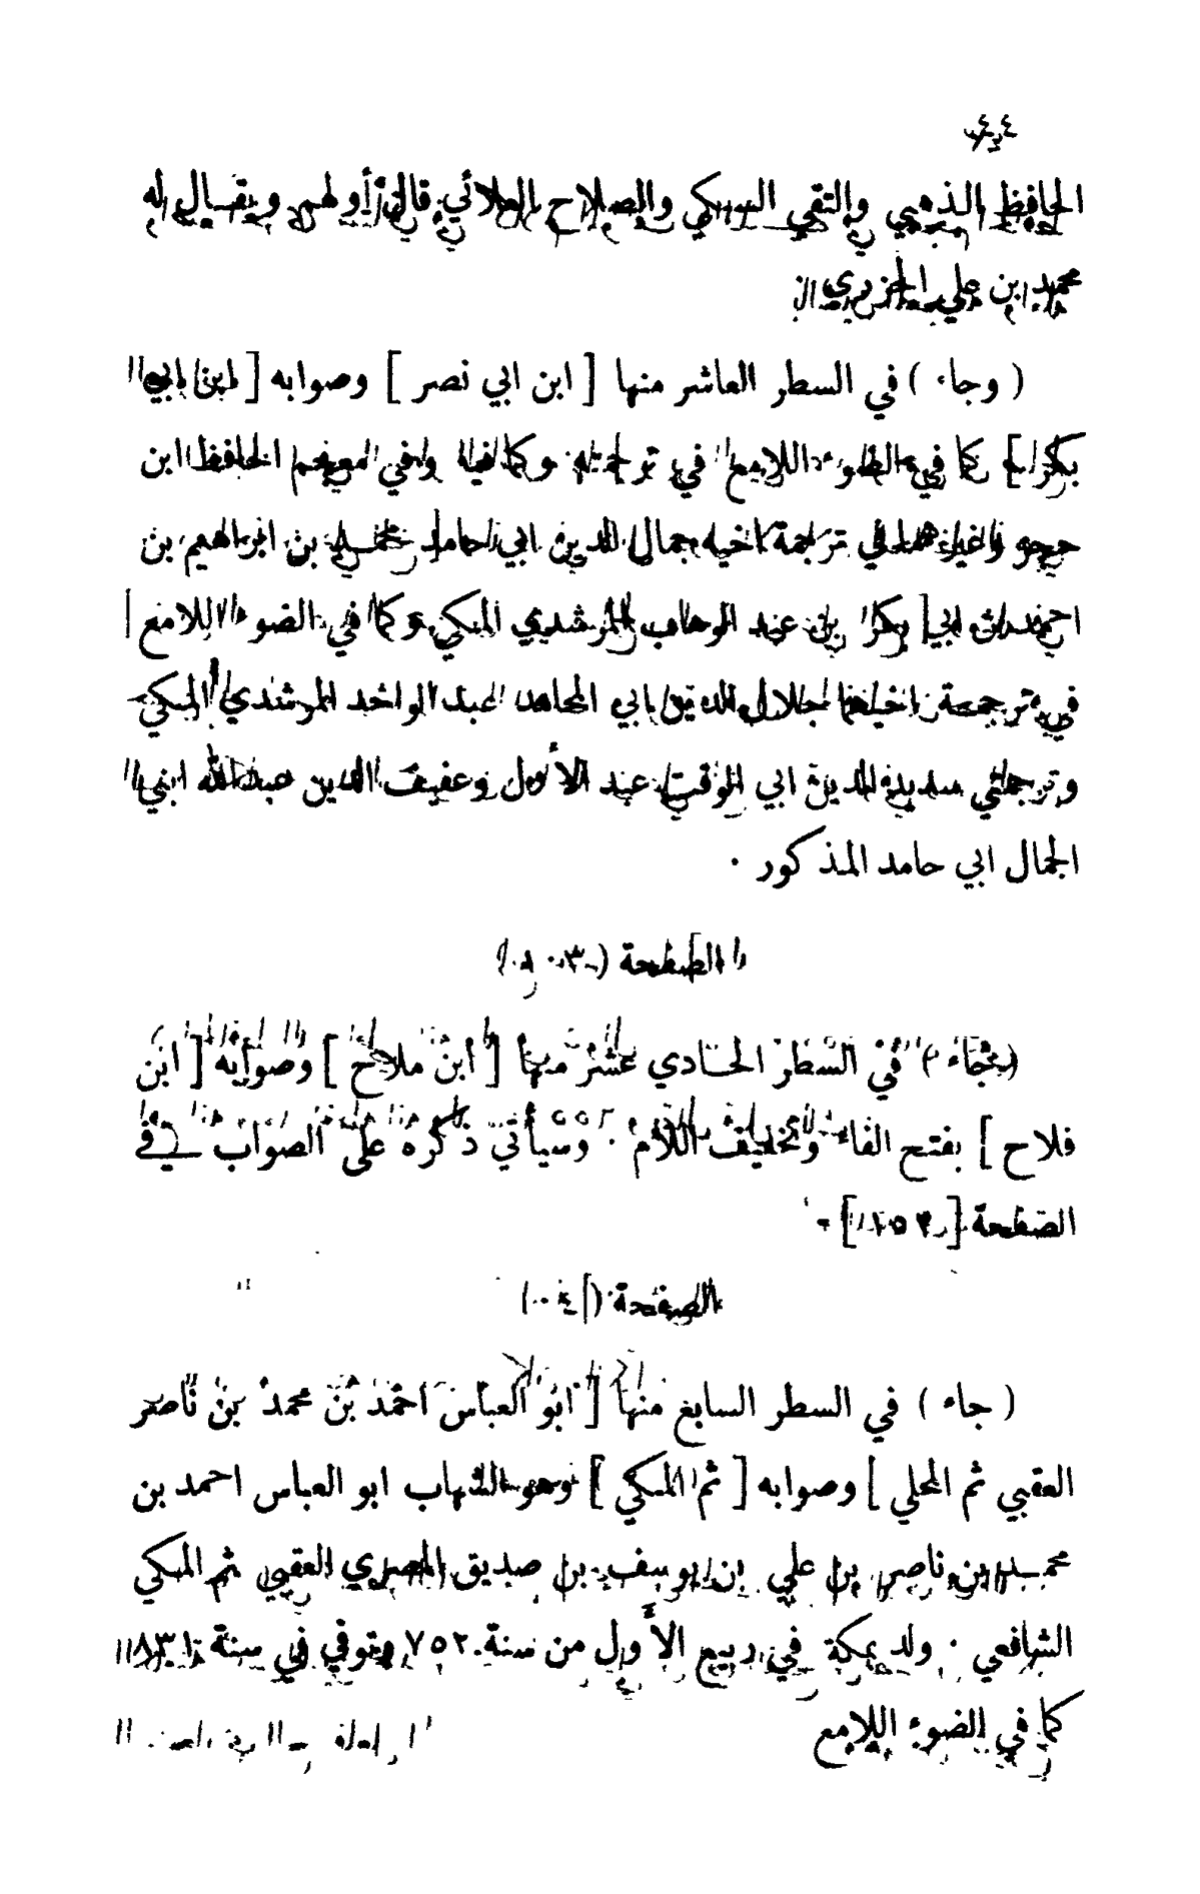 الحافظ الذهبي والتقي السبكي والصلاح العلائي قال أولهم ويقال له
محمد ابن علي الجزري
( وجاء ) في السطر العاشر منها [ ابن ابي نصر ] وصوابه [ ابن ابي
بكر ] كما في الضوء اللامع في ترجمته وكما فيه وفي معجم الحافظ ابن
حجر وغيرهما في ترجمة اخيه جمال الدين ابي حامد محمد بن ابراهيم بن
احمد بن ابي بكر بن عبد الوهاب المرشدي المكي وكما في الضوء اللامع
في ترجمة اخيهما جلال الدين ابي المحامد عبد الواحد المرشدي المكي
وترجمتي سديد الدين ابي الوقت عبد الأول وعفيف الدين عبد الله ابني
الجمال ابي حامد المذكور .
الصفحة
( جاء ) في السطر الحادي عشر منها [ ابن ملاح ] وصوابه [ ابن
فلاح ] بفتح الفاء وتخفيف اللام . وسيأتي ذكره على الصواب في
الصفحة
الصفحة
( جاء ) في السطر السابع منها [ ابو العباس احمد بن محمد بن ناصر
العقبي ثم المحلي ] وصوابه [ ثم المكي ] وهو الشهاب ابو العباس احمد بن
محمد بن ناصر بن علي بن يوسف بن صديق المصري العقبي ثم المكي
الشافعي . ولد بمكة في ربيع الأول من سنة ٧٥٢ وتوفي في سنة ٨٣١
كما في الضوء اللامع